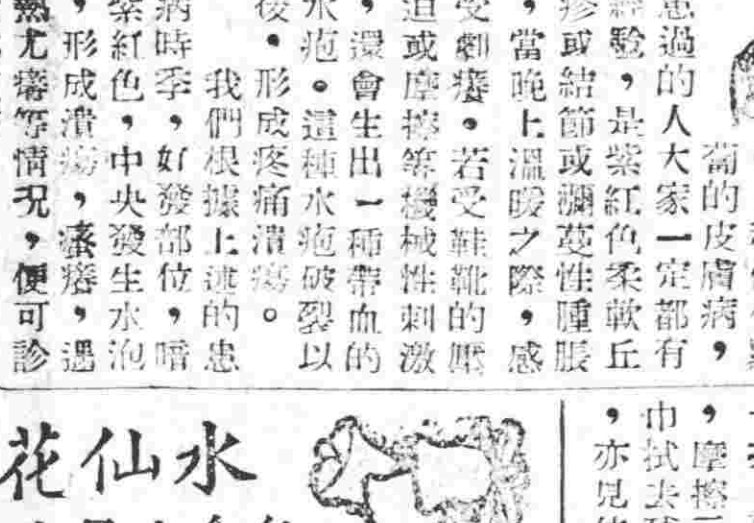 的皮膚病，
患過的人大家一定都有
經驗，是紫紅色柔軟丘
疹或結節或瀰蔓性腫脹
，當晚上溫暖之際，感
受劇癢。若受鞋靴的壓
迫或摩擦等機械性刺激
，還會生出一種帶血的
水疱。這種水疱破裂以
後，形成疼痛潰瘍。
我們根據上述的患
病時季，好發部位，暗
紫紅色，中央發生水泡
，形成潰瘍，瘙癢，遇
熱尤癢等情況，便可診
，摩擦
巾拭去
，亦見
水仙花